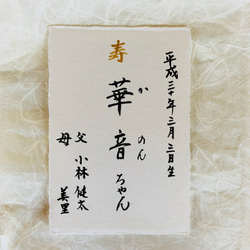 平成三十年三月三日生
寿
華音ちゃん
かのん
父 小林健太
母 美里